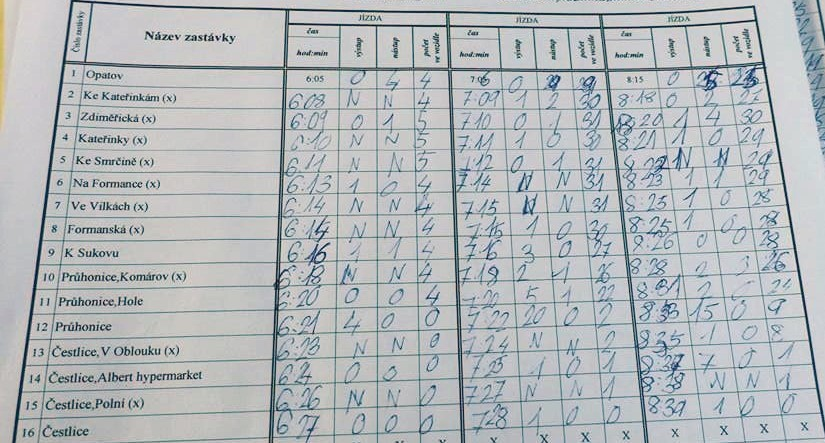 JÍZDA JÍZDA JÍZDA
Číslo zastávky Název zastávky čas výstup nástup počet ve vozidle čas výstup nástup počet ve vozidle čas výstup nástup počet ve vozidle
hod:min hod:min hod:min
1 Opatov 6:05 0 4 4 0 8:15 0
2 Ke Kateřinkám (x) 6:08 N N 4 7:09 1 2 30 8:18 0 2 27
3 Zdiměřická (x) 6:09 0 1 5 7:10 0 1 31 8:20 1 4 30
4 Kateřinky (x) 6:10 N N 5 7:11 1 0 30 8:21 1 0 29
5 Ke Smrčině (x) 6:11 N N 5 7:12 0 1 31 N N 29
6 Na Formance (x) 6:13 1 0 4 7:14 N N 31 8:23 1 1 29
7 Ve Vilkách (x) 6:14 N N 4 7:15 N N 31 8:25 1 0 28
8 Formanská (x) 6:14 N N 4 7:15 1 0 30 8:25 1 0 28
9 K Sukovu 6:16 1 1 4 7:16 3 0 27 8:26 0 0 28
10 Průhonice,Komárov (x) 6:18 N N 4 7:18 2 1 26 8:28 2 3 26
11 Průhonice,Hole 6:20 0 0 4 7:20 5 1 22 8:31 2 24
12 Průhonice 6:21 4 0 0 7:22 20 0 2 8:33 15 0 9
13 Čestlice,V Oblouku (x) 6:23 N N 0 7:24 N N 2 8:35 1 0 8
14 Čestlice,Albert hypermarket 6:24 0 0 0 7:25 1 0 1 8:37 7 0 1
15 Čestlice,Polní (x) 6:26 N N 0 7:27 N N 1 8:38 N N 1
16 Čestlice 6:27 0 0 0 7:28 1 0 0 8:39 1 0 0
x x x x x x x x